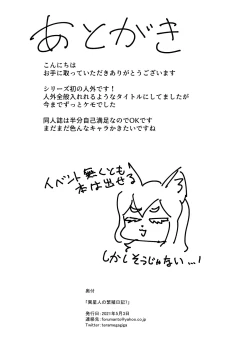 あとがき
こんにちは
お手に取っていただきありがとうございます
シリーズ初の人外です！
人外全般入れれるようなタイトルにしてましたが
今までずっとケモでした
同人誌は半分自己満足なのでOKです
まだまだ色んなキャラかきたいですね
イベント無くとも
本は出せる
しかしそうじゃない…！
奥付
発行日:2021年5月3日